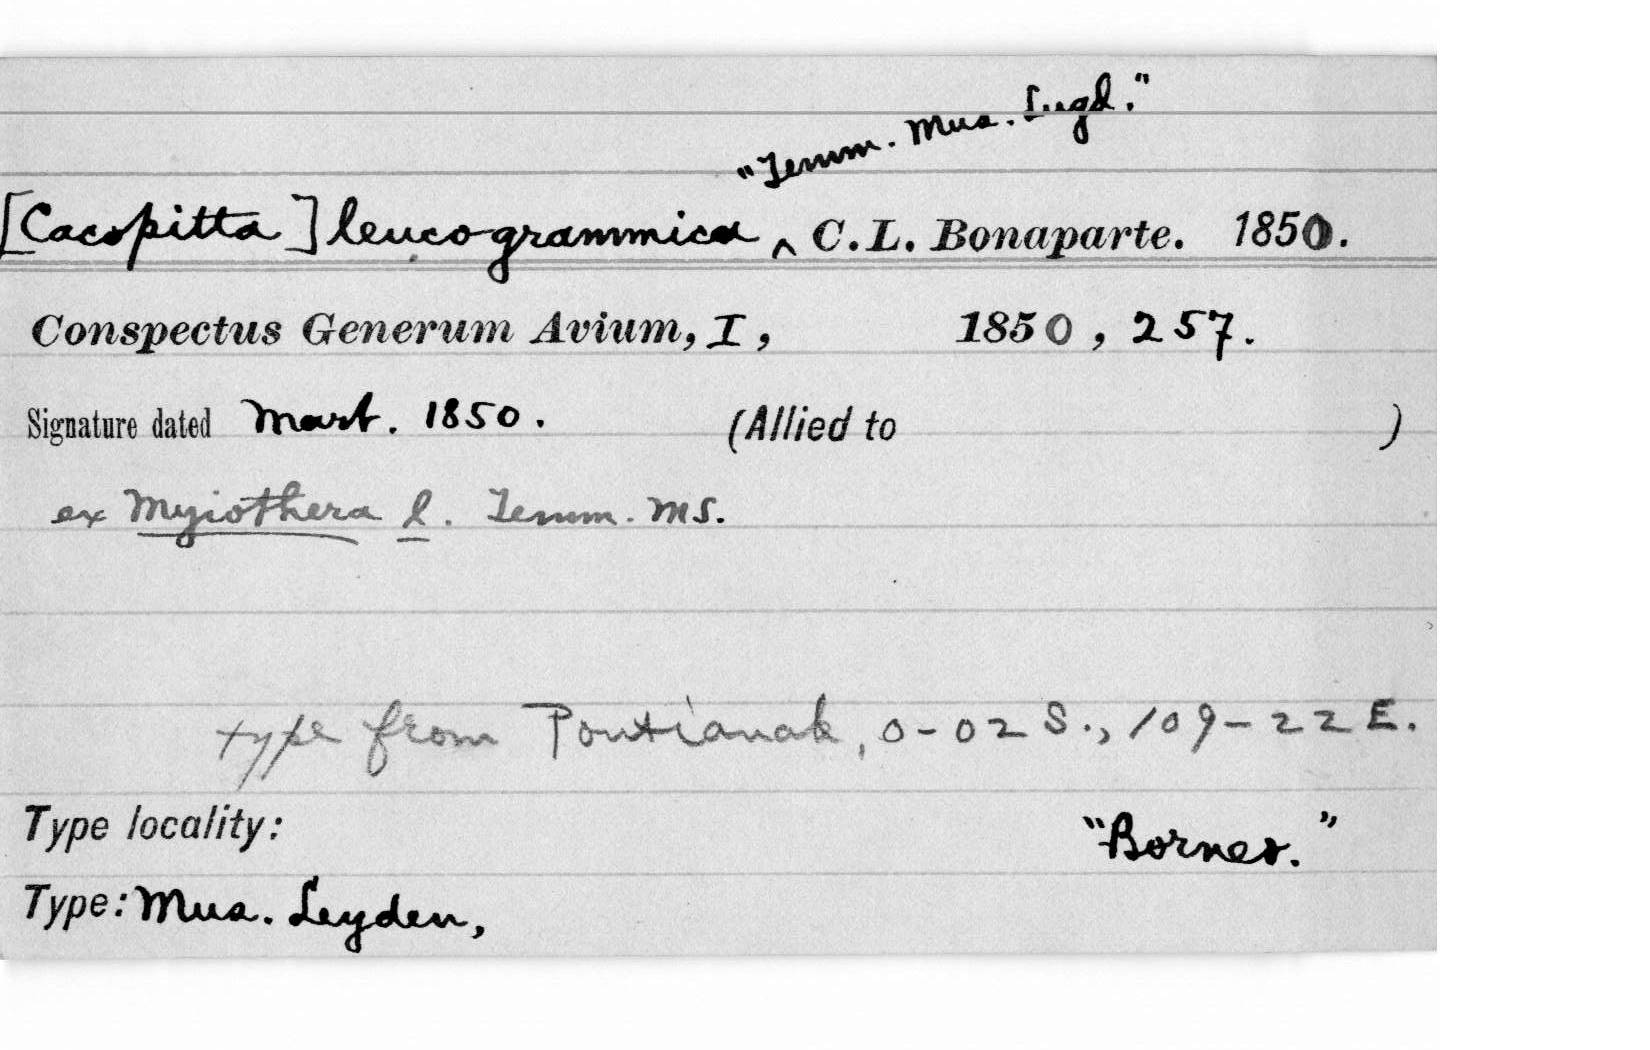 "Temm. Mus. Lugd."
[Cacopitta] leucogrammica ^ C.L. Bonaparte. 1850.
Conspectus Generum Avium, I, 1850, 257.
Signature dated Mart. 1850. (Allied to )
ex Myiothera l. Temm. MS.
type from Pontianak, 0-02 S., 109-22 E.
Type locality: "Borneo."
Type: Mus. Leyden,